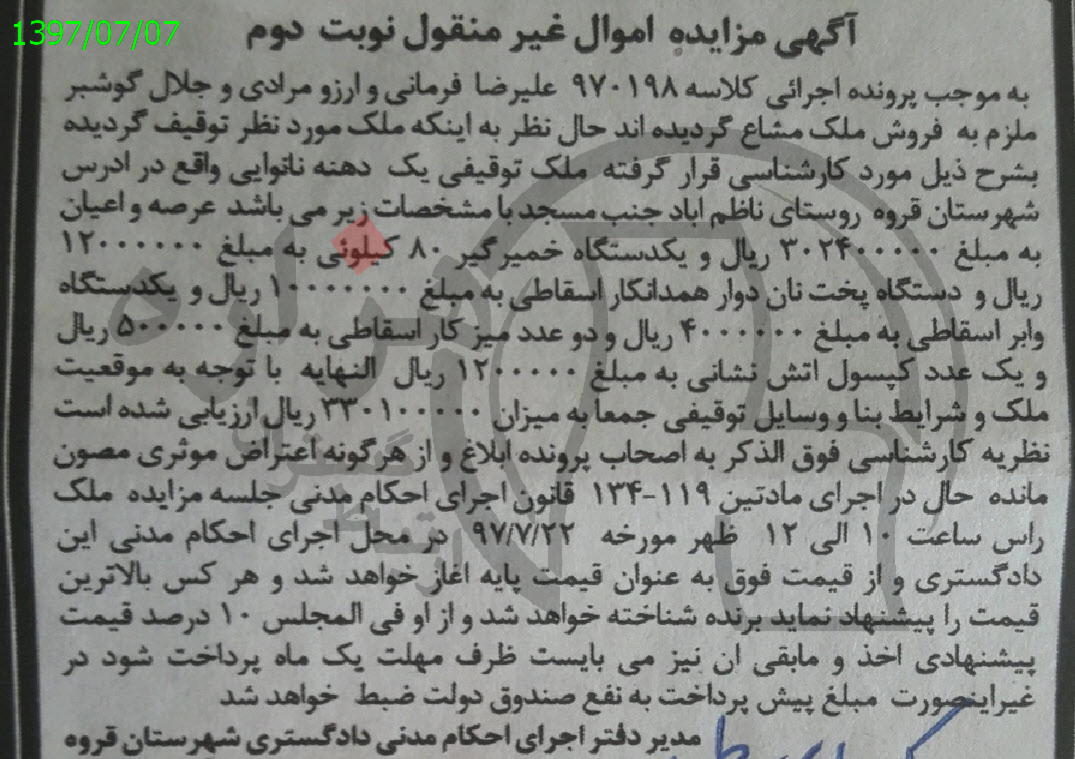 1397/07/07
آگهی مزایده اموال غیر منقول نوبت دوم
به موجب پرونده اجرائی کلاسه ۹۷۰۱۹۸ علیرضا فرمانی و ارزو مرادی و جلال گوشبر
ملزم به فروش ملک مشاع گردیده اند حال نظر به اینکه ملک مورد نظر توقیف گردیده
بشرح ذیل مورد کارشناسی قرار گرفته ملک توقیفی یک دهنه نانوایی واقع در ادرس
شهرستان قروه روستای ناظم اباد جنب مسجد با مشخصات زیر می باشد عرصه و اعیان
به مبلغ ۳۰۲۴۰۰۰۰۰ ریال و یکدستگاه خمیر گیر ۸۰ کیلوئی به مبلغ ۱۲۰۰۰۰۰۰
ریال و دستگاه پخت نان دوار همدانکار اسقاطی به مبلغ ۱۰۰۰۰۰۰۰ ریال و یکدستگاه
وابر اسقاطی به مبلغ ۴۰۰۰۰۰۰ ریال و دو عدد میز کار اسقاطی به مبلغ ۵۰۰۰۰۰ ریال
و یک عدد کپسول اتش نشانی به مبلغ ۱۲۰۰۰۰۰ ریال النهایه با توجه به موقعیت
ملک و شرایط بنا و وسایل توقیفی جمعا به میزان ۳۳۰۱۰۰۰۰۰ ریال ارزیابی شده است
نظریه کارشناسی فوق الذکر به اصحاب پرونده ابلاغ و از هرگونه اعتراض موثری مصون
مانده حال در اجرای مادتین ۱۱۹-۱۳۴ قانون اجرای احکام مدنی جلسه مزایده ملک
راس ساعت ۱۰ الی ۱۲ ظهر مورخه ۹۷/۷/۲۲ در محل اجرای احکام مدنی این
دادگستری و از قیمت فوق به عنوان قیمت پایه اغاز خواهد شد و هر کس بالاترین
قیمت را پیشنهاد نماید برنده شناخته خواهد شد و از او فی المجلس ۱۰ درصد قیمت
پیشنهادی اخذ و مابقی ان نیز می بایست ظرف مهلت یک ماه پرداخت شود در
غیراینصورت مبلغ پیش پرداخت به نفع صندوق دولت ضبط خواهد شد
مدیر دفتر اجرای احکام مدنی دادگستری شهرستان قروه